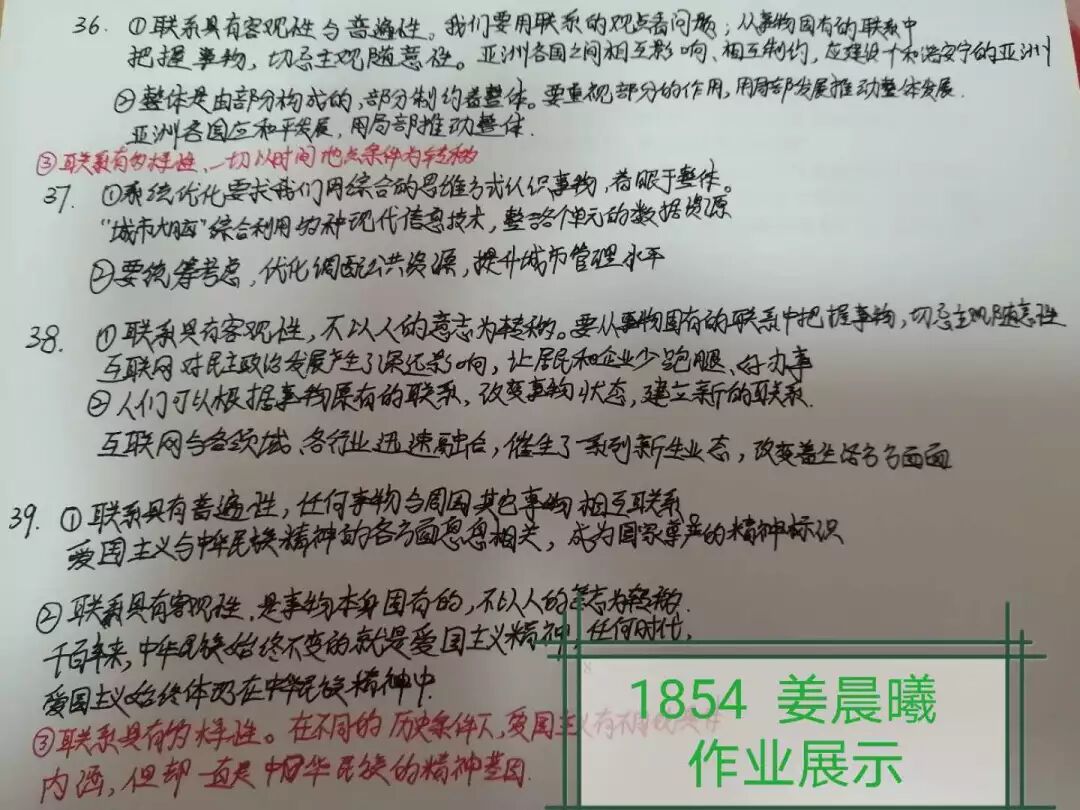 36. ①联系具有客观性与普遍性。我们要用联系的观点看问题；从事物固有的联系中
把握事物，切忌主观随意性。亚洲各国之间相互影响、相互制约，应建设一个和谐安宁的亚洲
②整体是由部分构成的，部分制约着整体。要重视部分的作用，用局部发展推动整体发展.
亚洲各国应和平发展，用局部推动整体.
③联系有多样性、一切以时间地点条件为转移
37. ①系统优化要求我们用综合的思维方式认识事物，着眼于整体。
“城市大脑”综合利用多种现代信息技术，整合各个单元的数据资源
②要统筹考虑，优化调配公共资源，提升城市管理水平
38. ①联系具有客观性，不以人的意志为转移。要从事物固有的联系中把握事物，切忌主观随意性
互联网对民主政治发展产生了深远影响，让居民和企业少跑腿、好办事
②人们可以根据事物原有的联系，改变事物状态，建立新的联系.
互联网与各领域、各行业迅速融合，催生了一系列新生业态，改变着生活方方面面
39. ①联系具有普遍性，任何事物与周围其它事物相互联系
爱国主义与中华民族精神的各方面息息相关，成为国家尊严的精神标识
②联系具有客观性，是事物本身固有的，不以人的意志为转移.
千百年来，中华民族始终不变的就是爱国主义精神，任何时代，
爱国主义始终体现在中华民族精神中.
③联系具有多样性。在不同的历史条件下，爱国主义有不同的
内涵，但却一直是中国华民族的精神基因.
1854 姜晨曦
作业展示